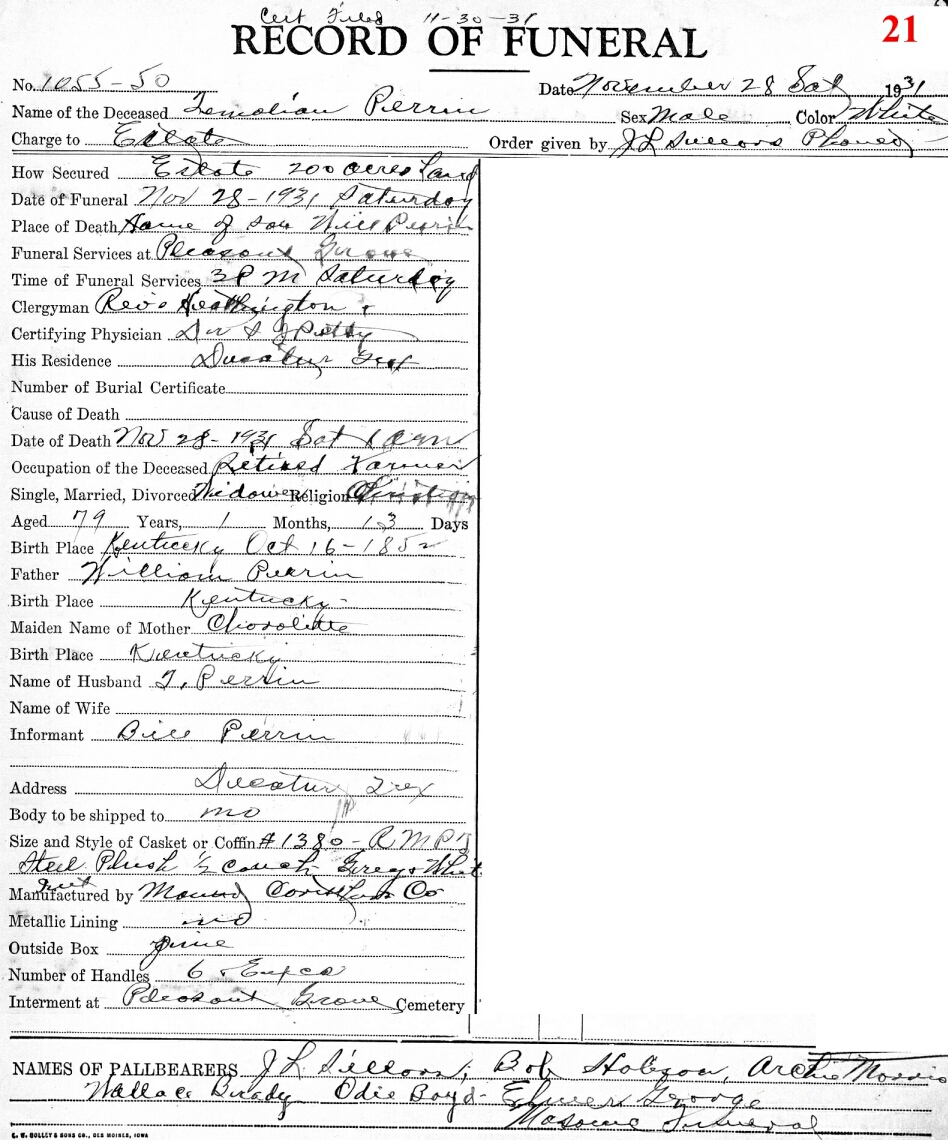 Cert Filed 11-30-31
21
RECORD OF FUNERAL
No. 1055-50 Date November 28 Sat 1931
Name of the Deceased Temolian Perrin Sex Male Color White
Charge to Estate Order given by J L Sillers Phoned
How Secured Estate 200 acres Land
Date of Funeral Nov 28-1931 Saturday
Place of Death Home of son Will Perrin
Funeral Services at Pleasant Grove
Time of Funeral Services 3 P M Saturday
Clergyman Rev.
Certifying Physician Dr Petty
His Residence Decatur Tex
Number of Burial Certificate
Cause of Death
Date of Death Nov 28-1931 Sat 1 am
Occupation of the Deceased Retired Farmer
Single, Married, Divorced Widower Religion Christian
Aged 79 Years, 1 Months, 13 Days
Birth Place Kentucky Oct 16-1852
Father William Perrin
Birth Place Kentucky
Maiden Name of Mother
Birth Place Kentucky
Name of Husband T. Perrin
Name of Wife
Informant Bill Perrin
Address Decatur Tex
Body to be shipped to no
Size and Style of Casket or Coffin #1380 - R M P
Steel Plush ½ couch Grey & White
Manufactured by Mound Co
Metallic Lining no
Outside Box pine
Number of Handles 6
Interment at Pleasant Grove Cemetery
NAMES OF PALLBEARERS J L Sillers, Bob Hobson, Archie Morris
Wallace Brady Odie Boyd - Elmer George
Masonic Funeral
C. W. BOLLEY & SONS CO., DES MOINES, IOWA